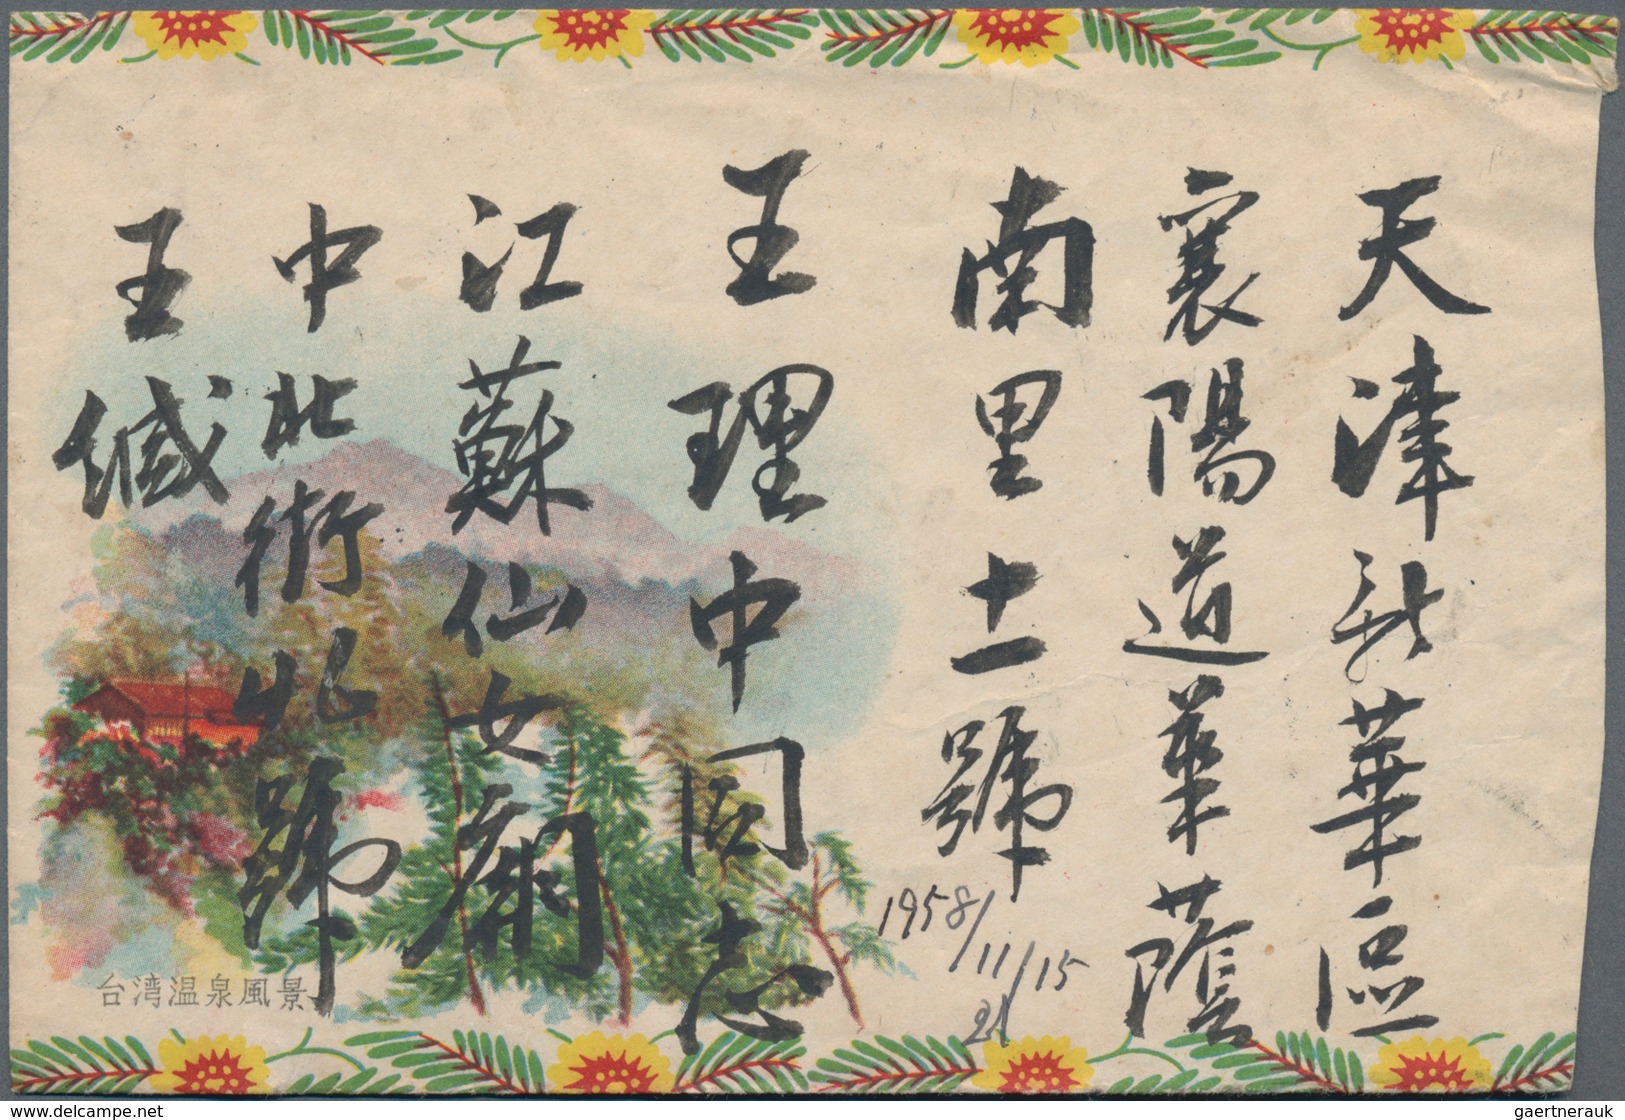 天津新華區
襄陽道華蔭
南里十一號
王理中同志
江蘇仙女廟
中北街北號
王缄
1958/11/15
21
台湾温泉風景
delcampe.net
gaertnerauk